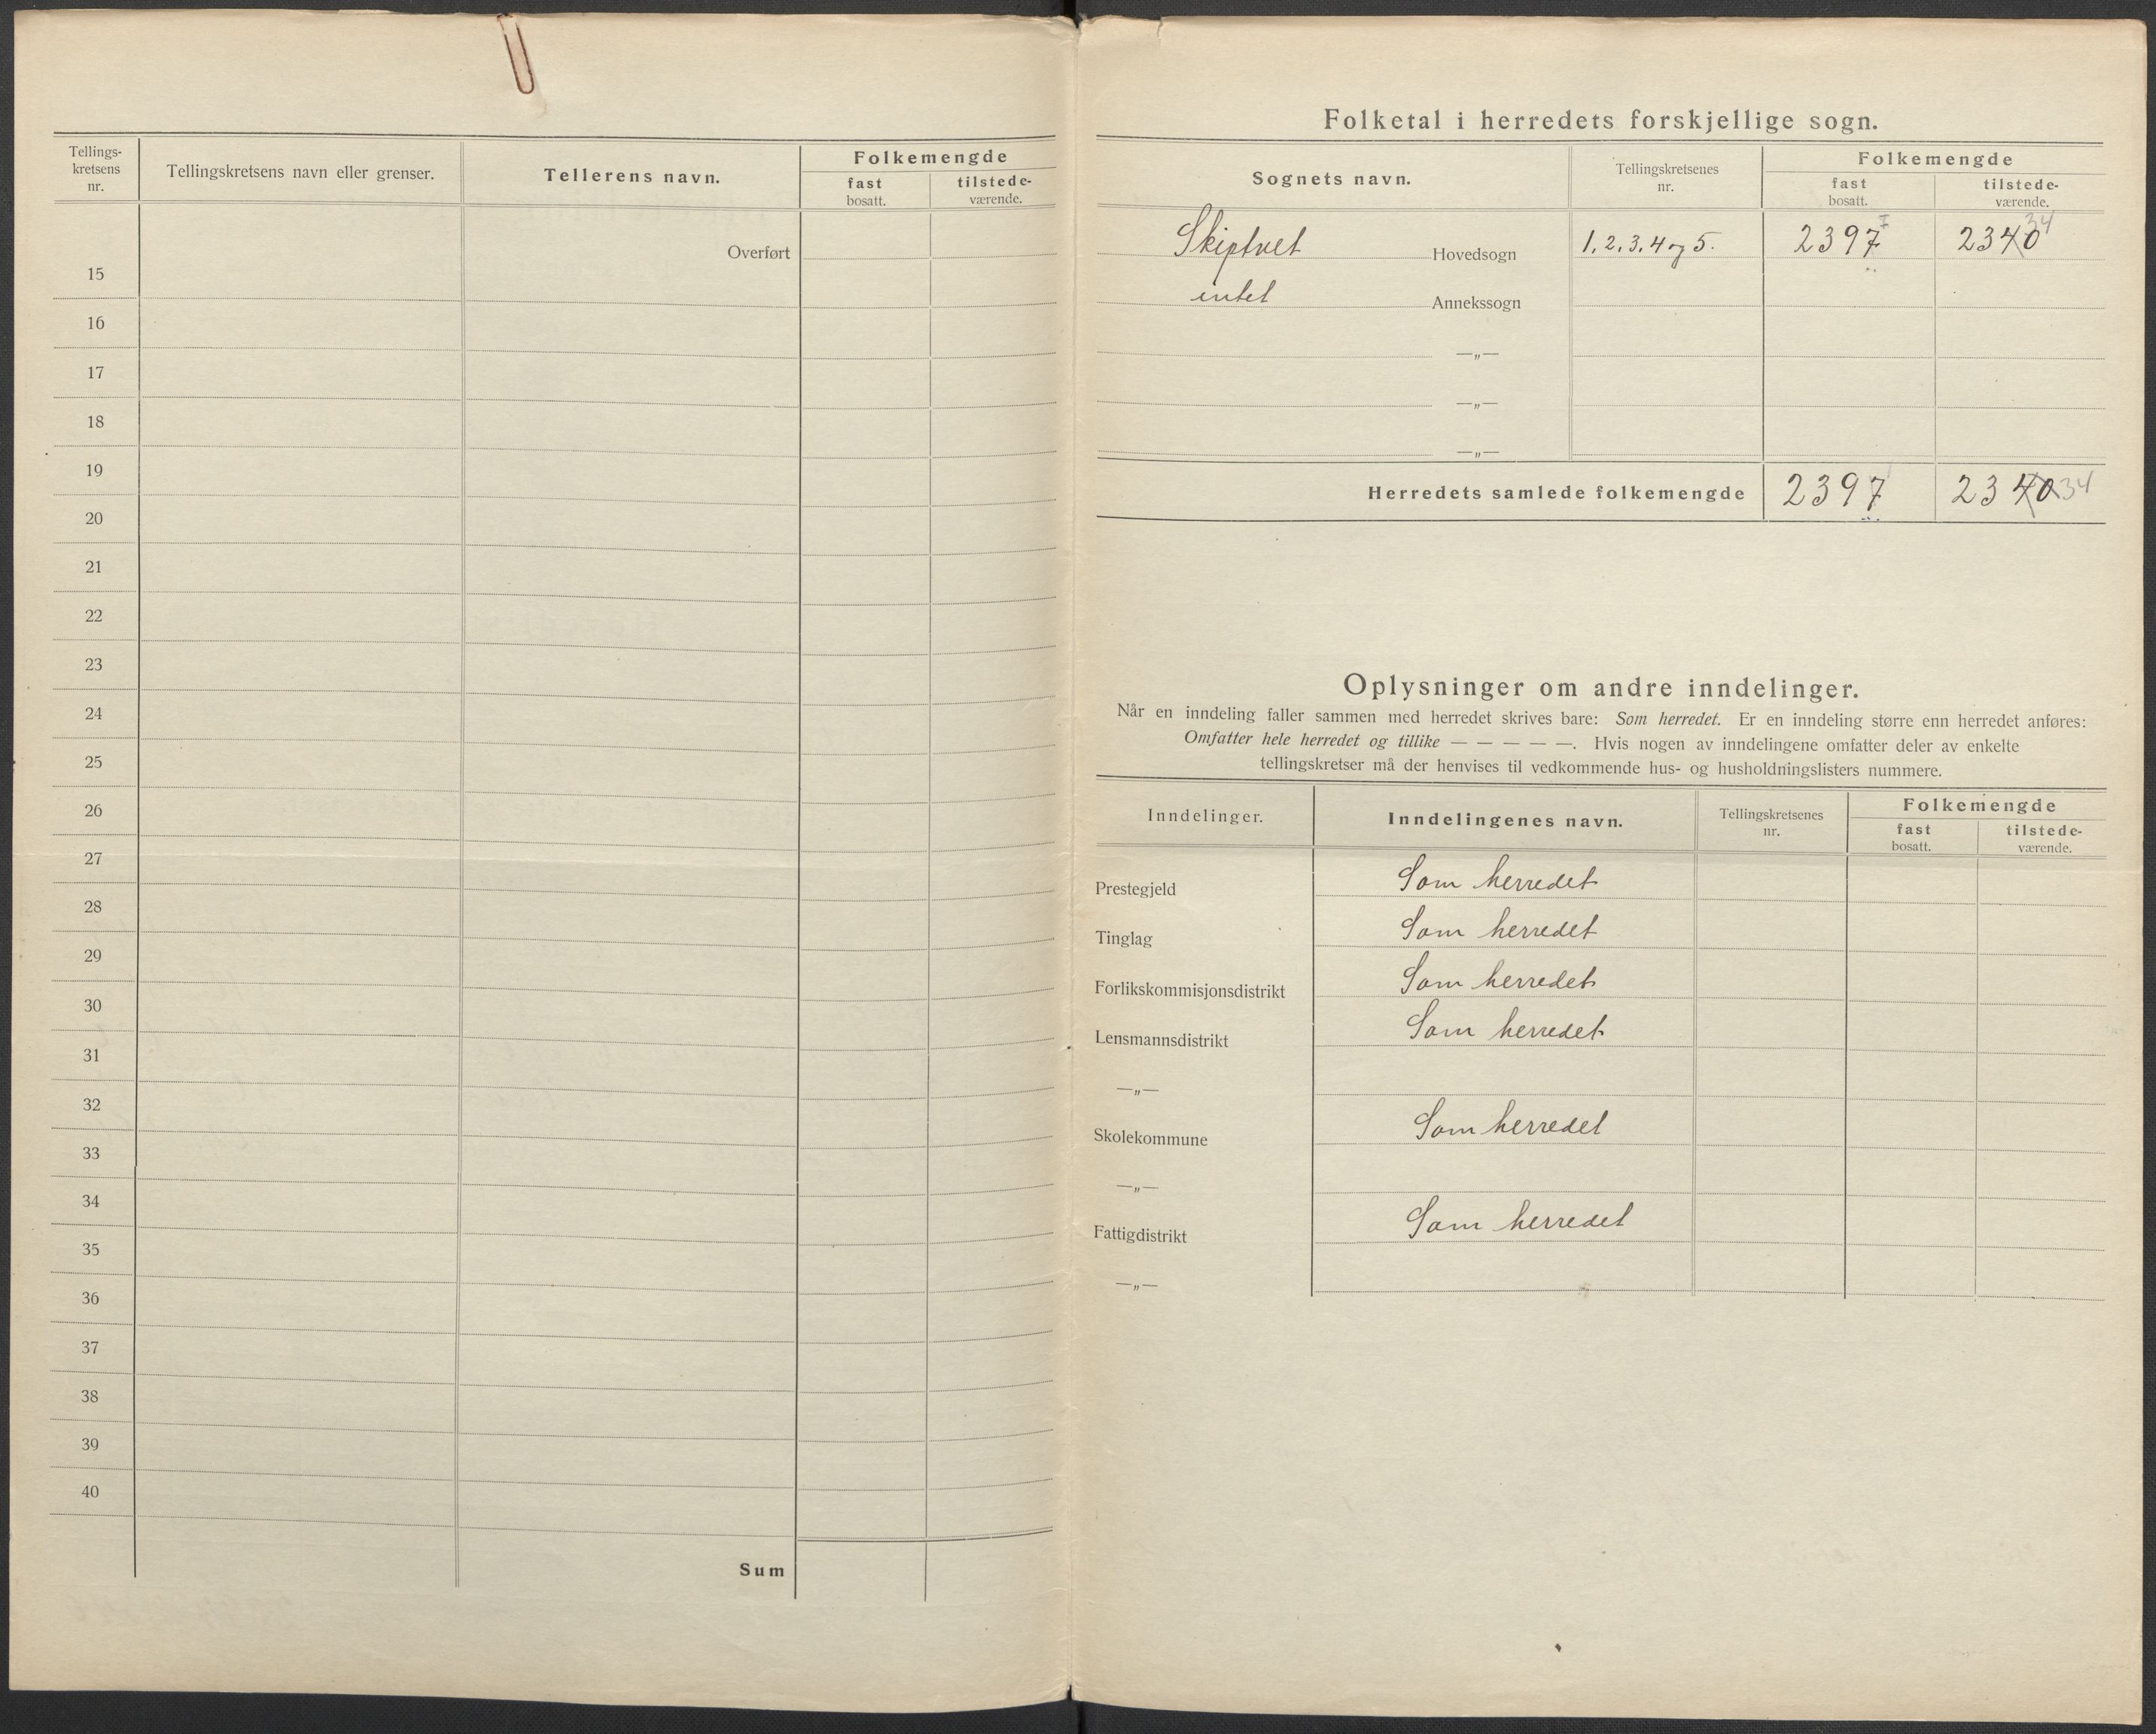 Tellings-
kretsens
nr.
Tellingskretsens navn eller grenser.
Tellerens navn.
Folkemengde
fast
bosatt.
tilstede-
værende.
Overført
15
16
17
18
19
20
21
22
23
24
25
26
27
28
29
30
31
32
33
34
35
36
37
38
39
40
Sum
Folketal i herredets forskjellige sogn.
Sognets navn.
Tellingskretsenes
nr.
Folkemengde
fast
bosatt.
tilstede-
værende.
34
Skiptvet Hovedsogn 1, 2, 3, 4 og 5. 2397 2340
intet Annekssogn
—„—
—„—
—„—
Herredets samlede folkemengde 2397 2340 34
Oplysninger om andre inndelinger.
Når en inndeling faller sammen med herredet skrives bare: Som herredet. Er en inndeling større enn herredet anføres:
Omfatter hele herredet og tillike — — — — —. Hvis nogen av inndelingene omfatter deler av enkelte
tellingskretser må der henvises til vedkommende hus- og husholdningslisters nummere.
Inndelinger.
Inndelingenes navn.
Tellingskretsenes
nr.
Folkemengde
fast
bosatt.
tilstede-
værende.
Prestegjeld Som herredet
Tinglag Som herredet
Forlikskommisjonsdistrikt Som herredet
Lensmannsdistrikt Som herredet
—„—
Skolekommune Som herredet
—„—
Fattigdistrikt Som herredet
—„—